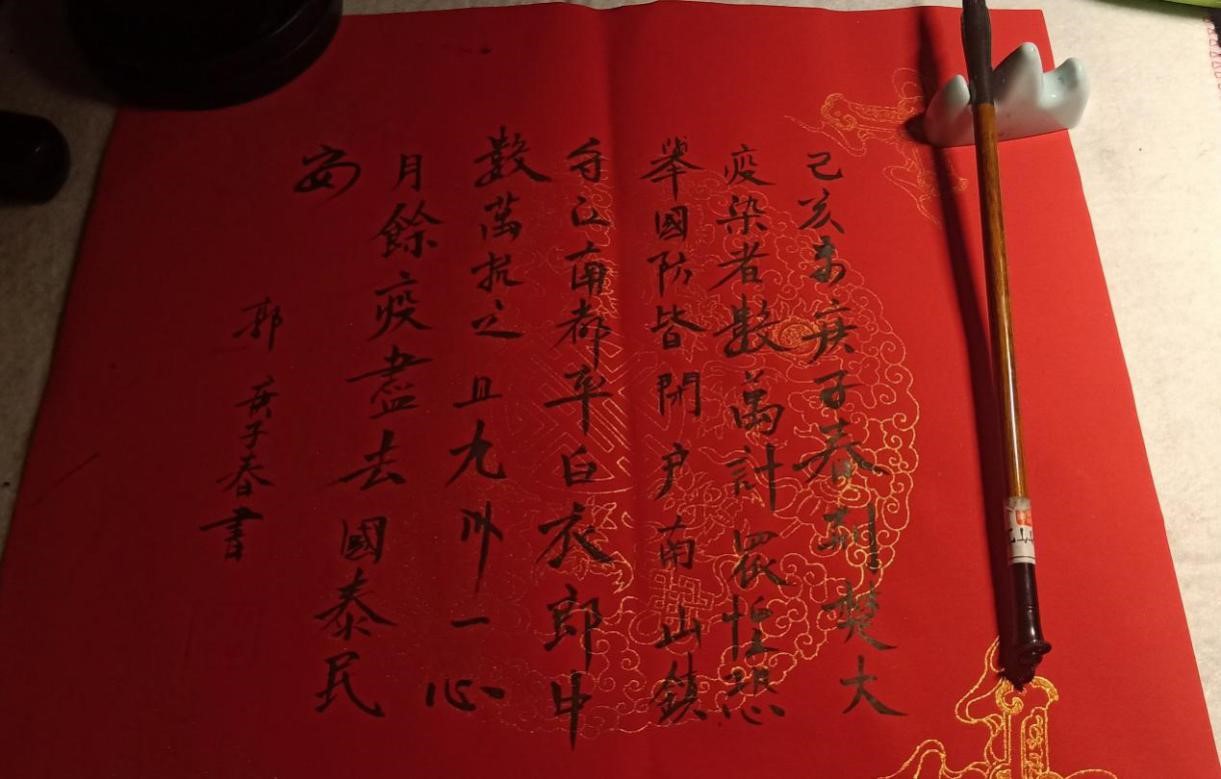 己亥末庚子春荆楚大
疫染者數萬計眾惶恐
舉國防皆閉户南山鎮
守江南都率白衣郎中
數萬抗之且九州一心
月餘疫盡去國泰民
安
郭
庚子春書